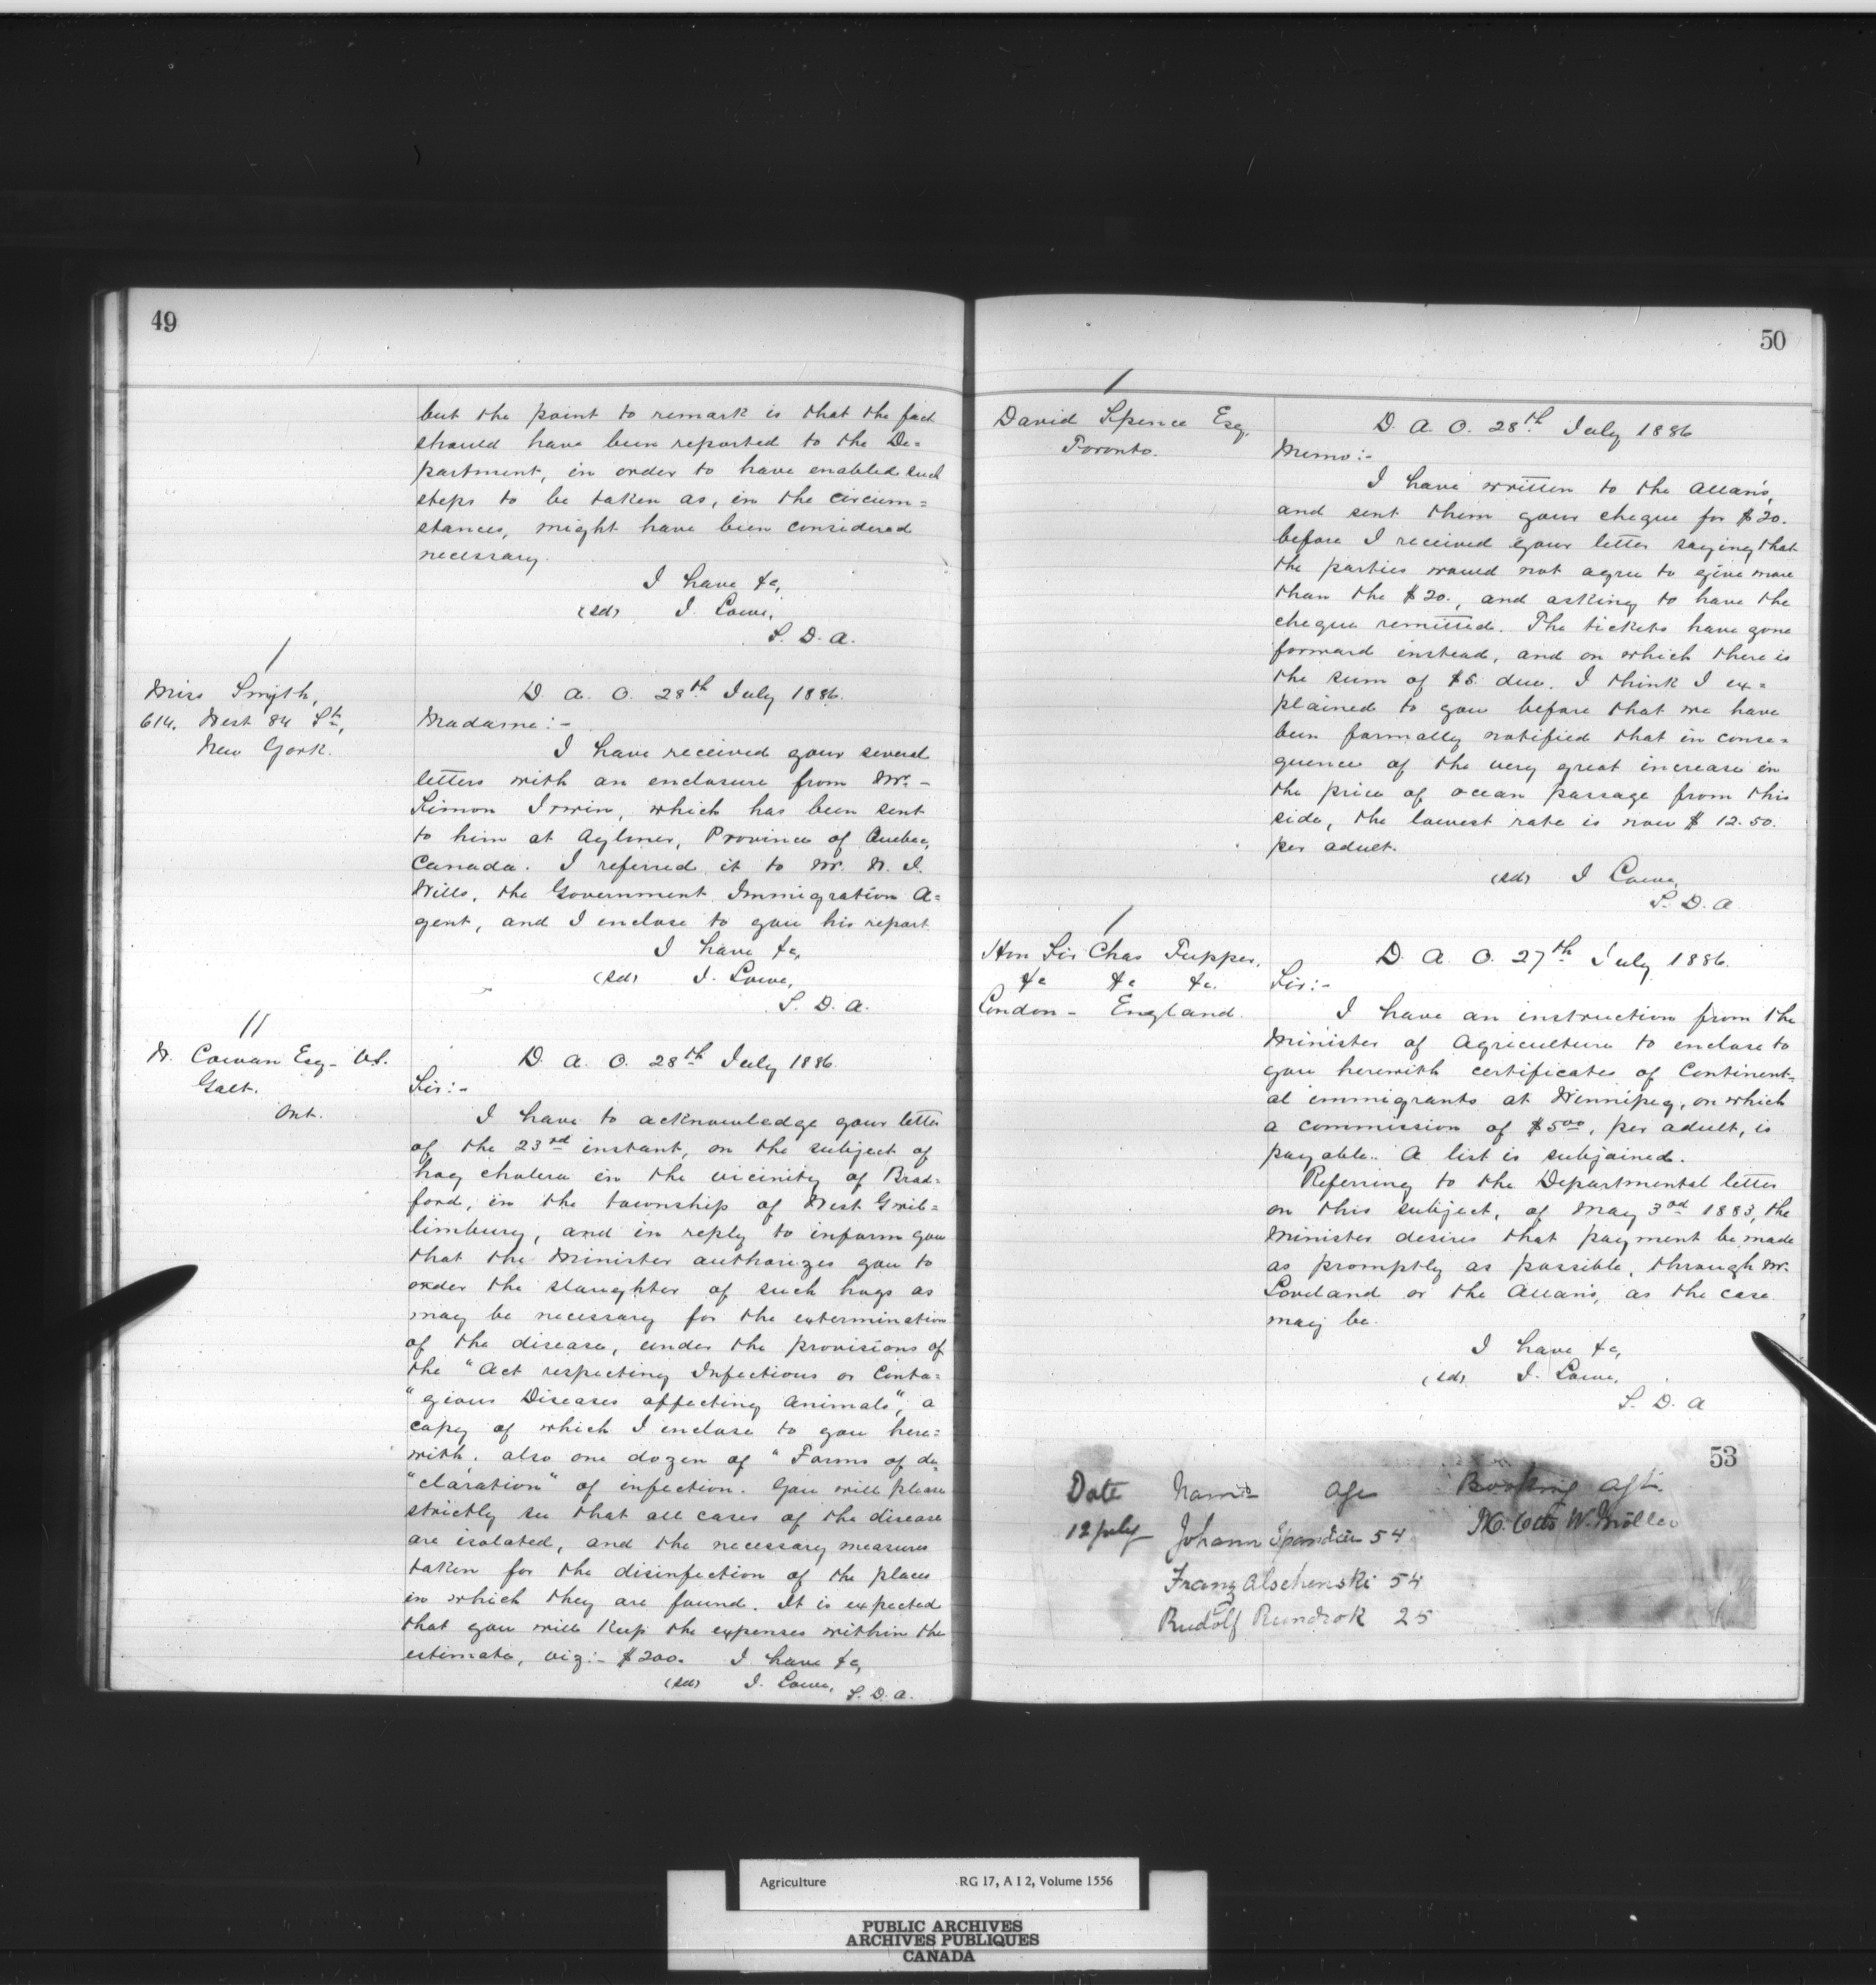 49
but the point to remark is that the fact
should have been reported to the De=
partment, in order to have enabled such
steps to be taken as, in the circum=
stances, might have been considered
necessary.
I have &c,
(sd) J. Lowe,
S. D. A.
Miss Smyth,
614, West 84 St,
New York.
D. A. O. 28th July 1886.
Madame:-
I have received your several
letters with an enclosure from Mr. -
Simon Irwin, which has been sent
to him at Aylmer, Province of Quebec,
Canada. I referred it to Mr. W. J.
Wills, the Government Immigration A=
gent, and I enclose to you his report
I have &c,
(sd) J. Lowe,
S. D. A.
W. Cowan Esq- V.S.
Galt.
Ont.
D. A. O. 28th July 1886.
Sir:-
I have to acknowledge your letter
of the 23rd instant, on the subject of
hog cholera in the vicinity of Brad=
ford, in the township of West Gwil=
limbury, and in reply to inform you
that the Minister authorizes you to
order the slaughter of such hogs as
may be necessary for the extermination
of the disease, under the provisions of
the "Act respecting Infectious or Conta=
"gious Diseases affecting Animals", a
copy of which I enclose to you here=
with. also one dozen of "Forms of de=
"claration" of infection. You will please
strictly see that all cases of the disease
are isolated, and the necessary measures
taken for the disinfection of the places
in which they are found. It is expected
that you will keep the expenses within the
estimate, viz:- $200. I have &c,
(sd) J. Lowe, S. D. A.
50
David Spence Esq.
Toronto.
D. A. O. 28th July 1886
Memo:-
I have written to the Allan's,
and sent them your cheque for $20.
before I received your letter saying that
the parties would not agree to give more
than the $20., and asking to have the
cheque remitted. The tickets have gone
forward instead, and on which there is
the sum of $5. due. I think I ex=
plained to you before that we have
been formally notified that in conse=
quence of the very great increase in
the price of ocean passage from this
side, the lowest rate is now $12.50.
per adult.
(sd) J Lowe,
S. D. A
Hon Sir Chas Tupper,
&c &c &c.
London - England.
D. A. O. 27th July 1886.
Sir:-
I have an instruction from the
Minister of Agriculture to enclose to
you herewith certificates of Continent=
al immigrants at Winnipeg, on which
a commission of $5 00, per adult, is
payable. A list is subjoined.
Referring to the Departmental letter
on this subject, of May 3rd 1883, the
Minister desires that payment be made
as promptly as possible, through Mr.
Loveland or the Allans, as the case
may be.
I have &c,
(sd) J. Lowe,
S. D. A
53
Date Names Age Booking Agt.
12 July Johann 54 Otto W. Möller
Franz Alschenski 54
Rudolf 25
Agriculture RG 17, A I 2, Volume 1556
PUBLIC ARCHIVES
ARCHIVES PUBLIQUES
CANADA